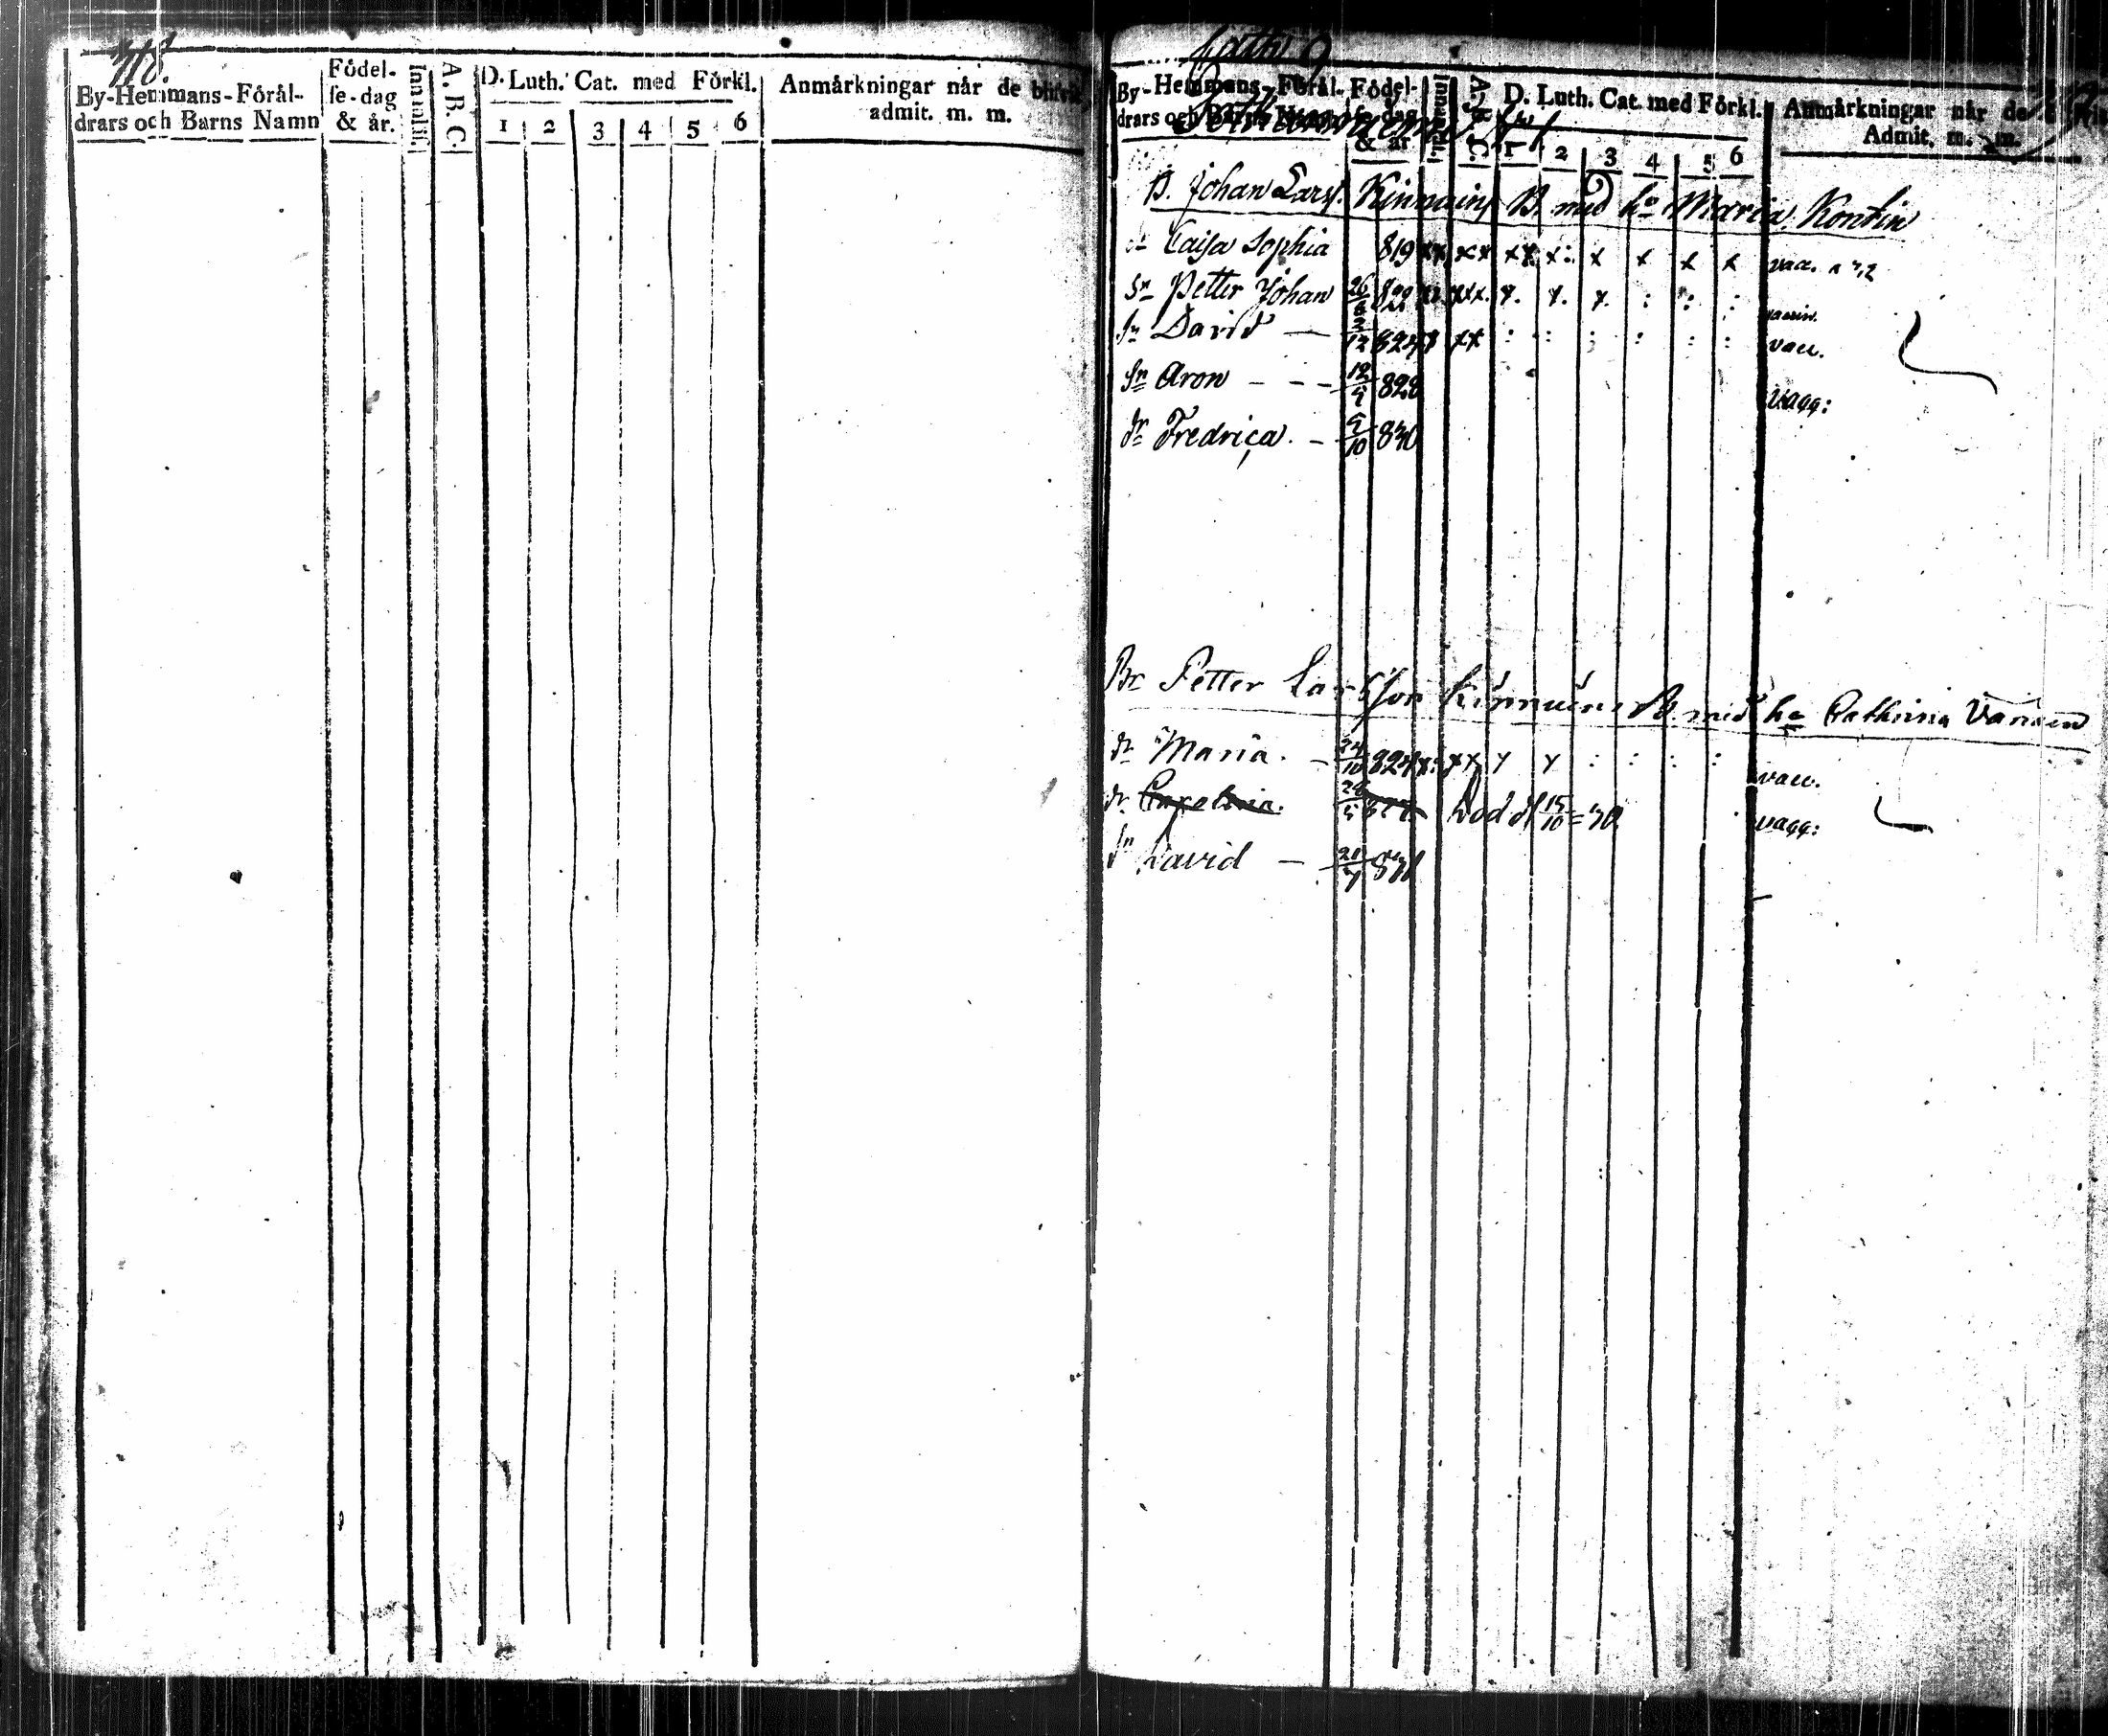 By-Hemmans-Föräl-
drars och Barns Namn
Födel-
se-dag
& år.
Innantil.
A. B. C.
D. Luth. Cat. med Förkl.
1 2 3 4 5 6
Anmärkningar når de blifvit
admit. m. m.
By-Hemmans-Föräl-
drars och Barns Namn
Födel-
se-dag
& år
Innantil.
A. B. C.
D. Luth. Cat. med Förkl.
1 2 3 4 5 6
Anmärkningar når de
Admit. m. m.
B. Johan Larss. Kinnuin B. med ho Maria Kontin
dr Caisa Sophia 819 xx xx xx x: x x x x vacc.
Sn Petter Johan 822 xxx. x. x. x. : : :
Sn David — 824 xx : : : : : : vacc.
Sn Aron - - - 12 828 vagg:
dr Fredrica. - 5/10 830
Br Petter Larsson Kinnuin B. med ho Cathrina
dr Maria. - 24/10 824 x: xx x x : : : : vacc.
dr Carolina. Död d 15/10 = 30. vagg:
Sn David — 831